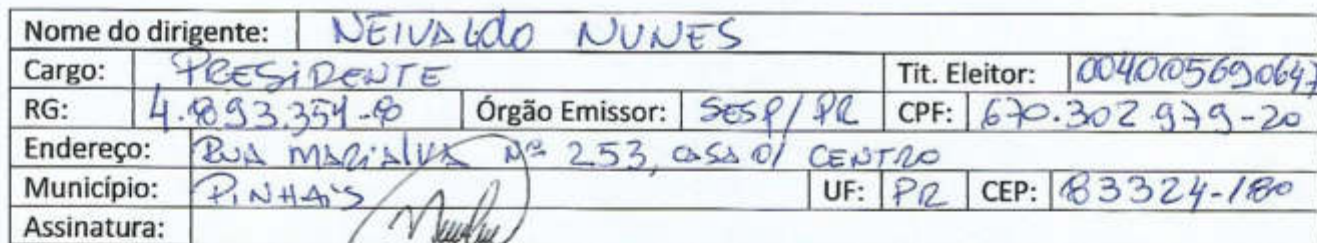 Nome do dirigente: NEIVALDO NUNES
Cargo: PRESIDENTE Tit. Eleitor: 004005690647
RG: 4.893.354-8 Órgão Emissor: SESP/PR CPF: 670.302.979-20
Endereço: RUA MARIALVA Nº 253, CASA 01 CENTRO
Município: PINHAIS UF: PR CEP: 83324-180
Assinatura: